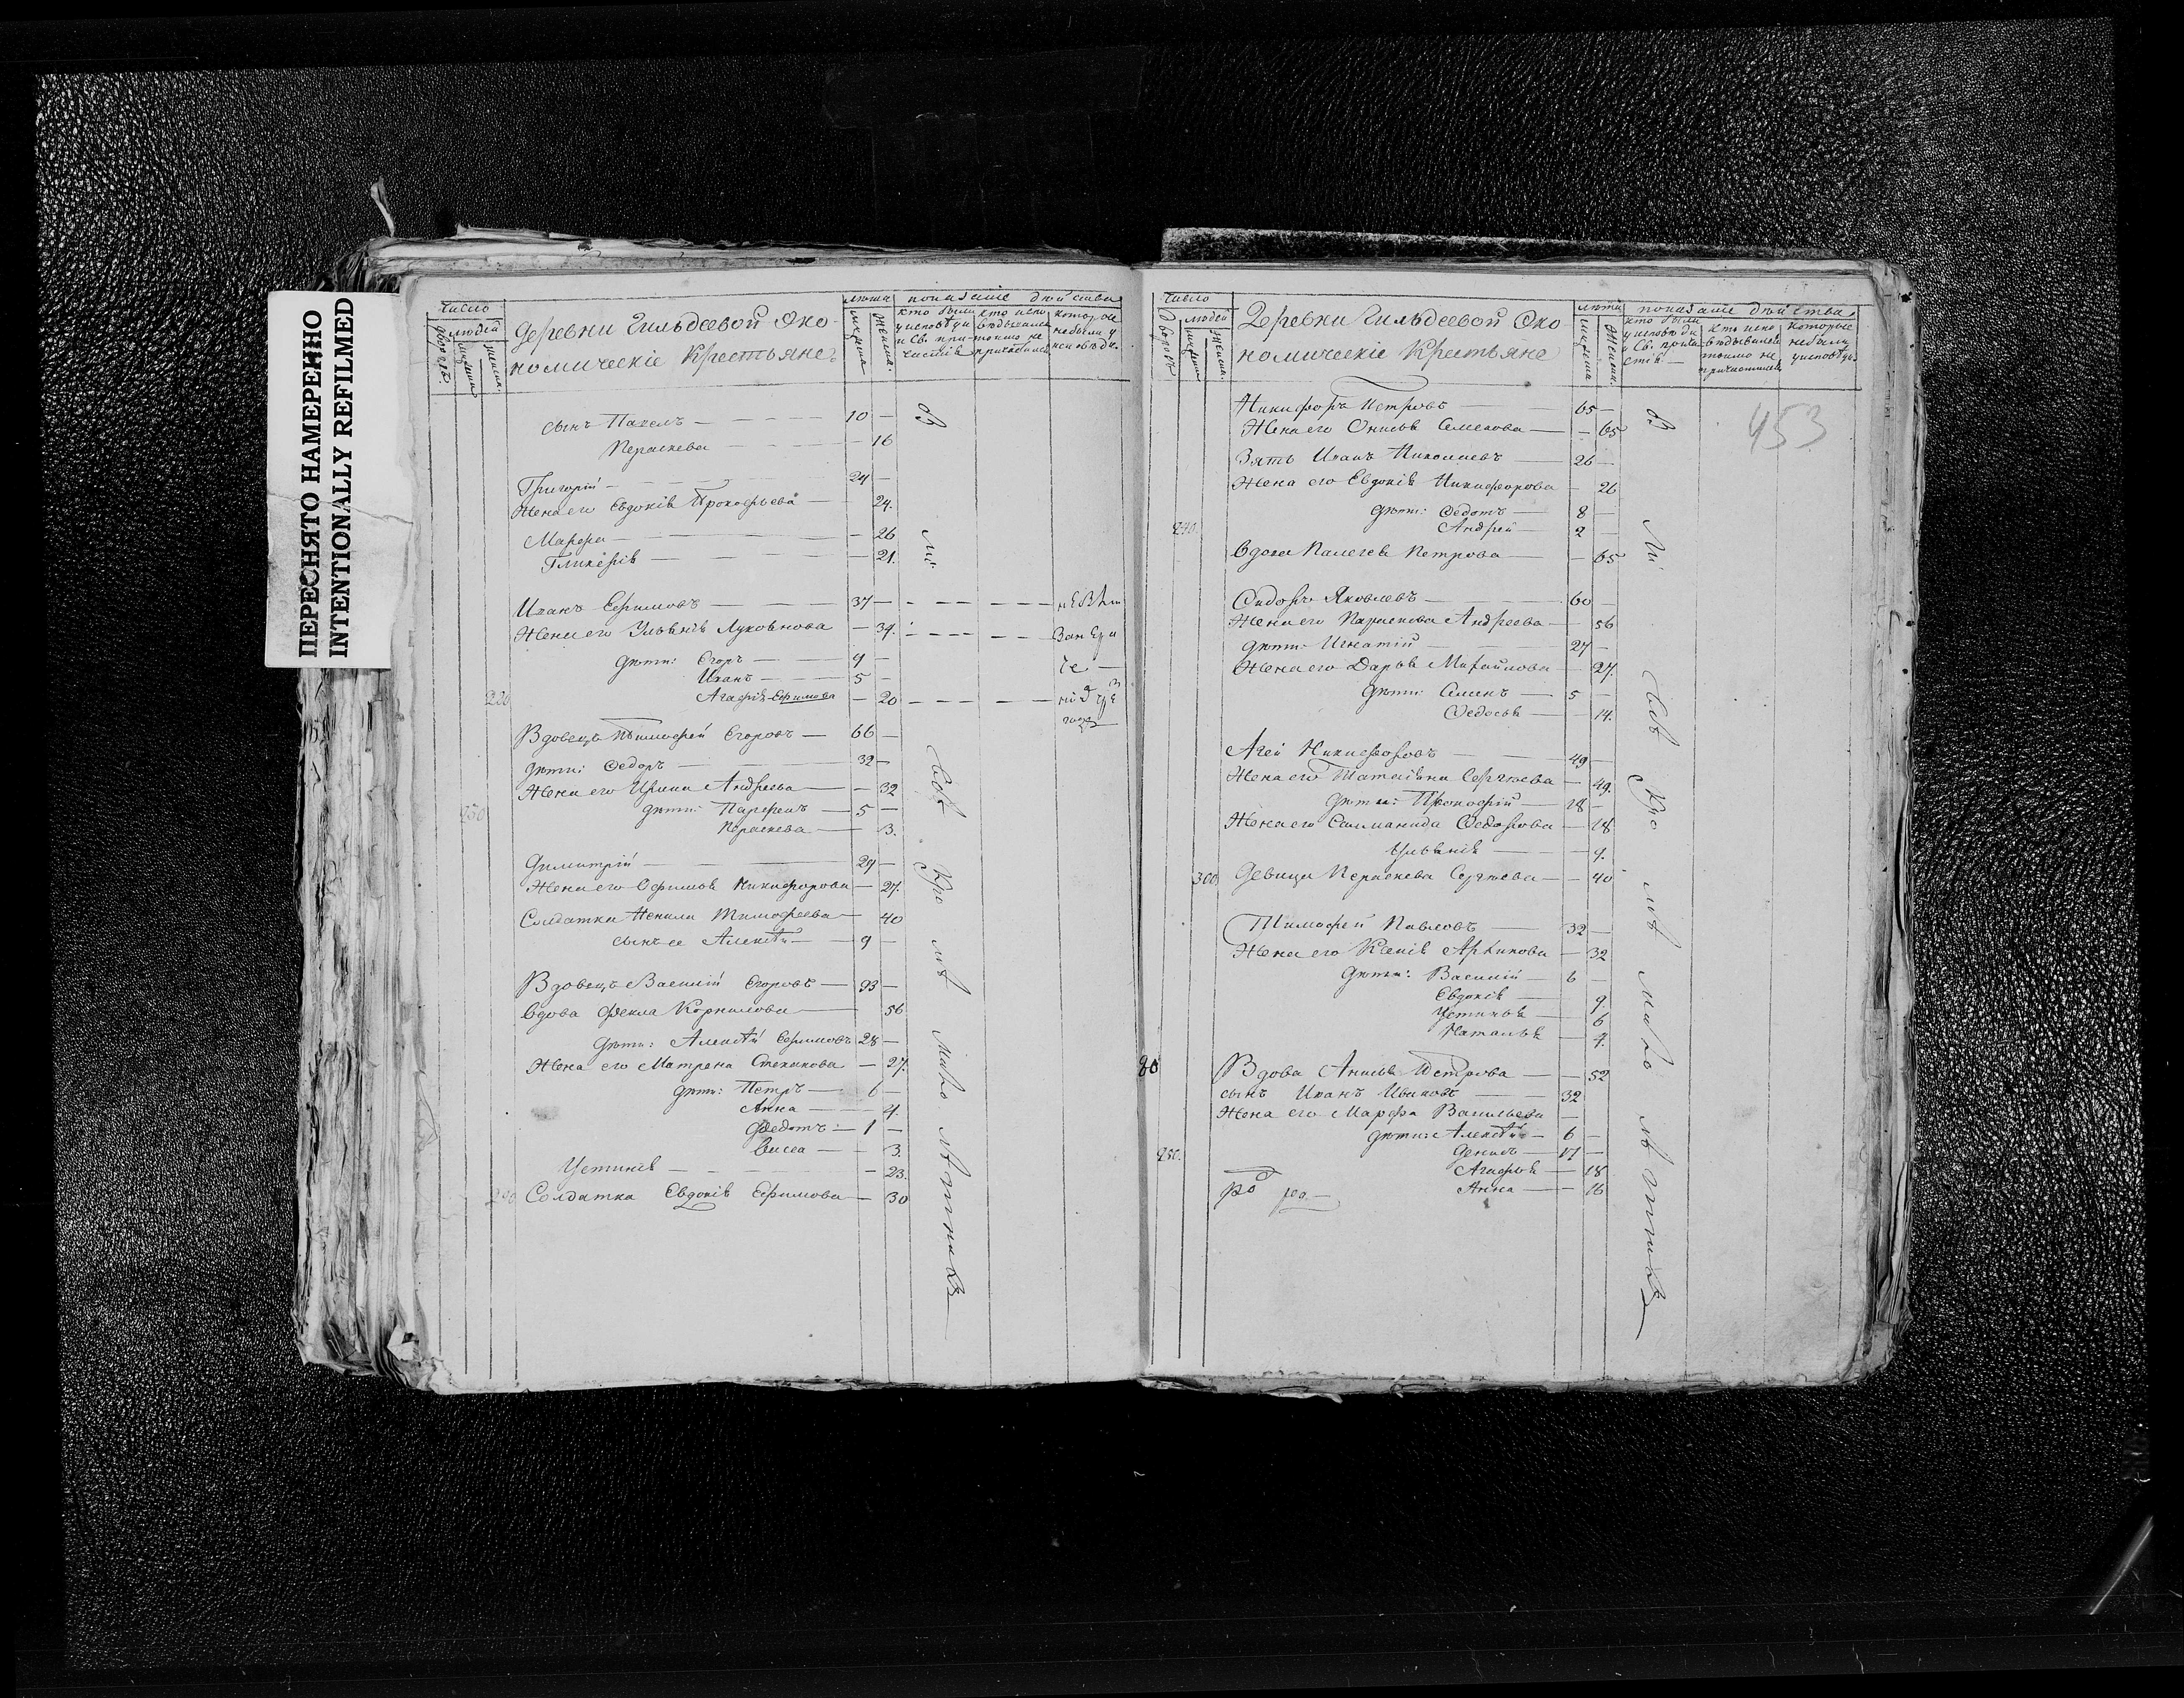 ПЕРЕСНЯТО НАМЕРЕННО
INTENTIONALLY REFILMED
число
дворовъ
людей
Деревни Гильдеевой Эко-
номическіе Крестьяне
лѣта
показаніе дѣйства
кто были у исповѣди и Св. причастія
кто исповѣдывался токмо не причастился
которые небыли у исповѣди
сынъ Павелъ — 10
Пераскева — 16
Григорій — 24
Жена его Евдокія Прокофьева — 24.
Марфа — 26
Гликерія — 21.
Иванъ Ефимовъ — 37
Жена его Ульянія — 34.
дѣти: Егоръ — 9
Иванъ — 5
Агафія Ефимова — 20
Вдовецъ Тимофей Егоровъ — 66
дѣти: Федоръ — 32
Жена его Ирина Андреева — 32
дѣти: Парфенъ — 5
Пераскева — 3.
250
Димитрій — 29
Жена его Офимья Никифорова — 27.
Солдатка Ненила Тимофеева — 40
сынъ ее Алексѣй — 9
Вдовецъ Василій Егоровъ — 93
Вдова Фекла Корнилова — 56
дѣти: Алексѣй Ефимовъ 28
Жена его Матрена Степанова — 27.
дѣти: Петръ — 6
Анна — 4.
Федотъ — 1
Васса — 3.
Устинія — 23.
Солдатка Евдокія Ефимова — 30
число
дворовъ
людей
Деревни Гильдеевой Эко-
номическіе Крестьяне
лѣта
показаніе дѣйства
кто были у исповѣди и Св. причастія
кто исповѣдывался токмо не причастился
которые небыли у исповѣди
453
Никифоръ Петровъ — 65
Жена его Онисья Семенова — 65
Зять Иванъ Николаевъ — 26
Жена его Евдокія Никифорова — 26
дѣти: Федотъ — 8
Андрей — 2
Вдова Пелагея Петрова — 65
Сидоръ Яковлевъ — 60
Жена его Параскева Андреева — 56
дѣти: Игнатій — 27
Жена его Дарья Михайлова — 27.
дѣти: Семенъ — 5
Федосья — 14.
Агей Никифоровъ — 49
Жена его Татьяна Сергѣева — 49.
дѣти: Прокофій — 18
Жена его Соломанида Федорова — 18
Ульянія — 9.
300 Девица Пераскева Сергѣева — 40
Тимофей Павловъ — 32
Жена его Ксенія Архипова — 32
дѣти: Василій — 6
Евдокія — 9
Устинья — 6
Наталья — 4.
80 Вдова Анисья Петрова — 52
сынъ Иванъ Ивановъ — 32
Жена его Марфа Васильева —
дѣти: Алексѣй — 6
Денисъ — 17
Агафья — 18
Анна — 16